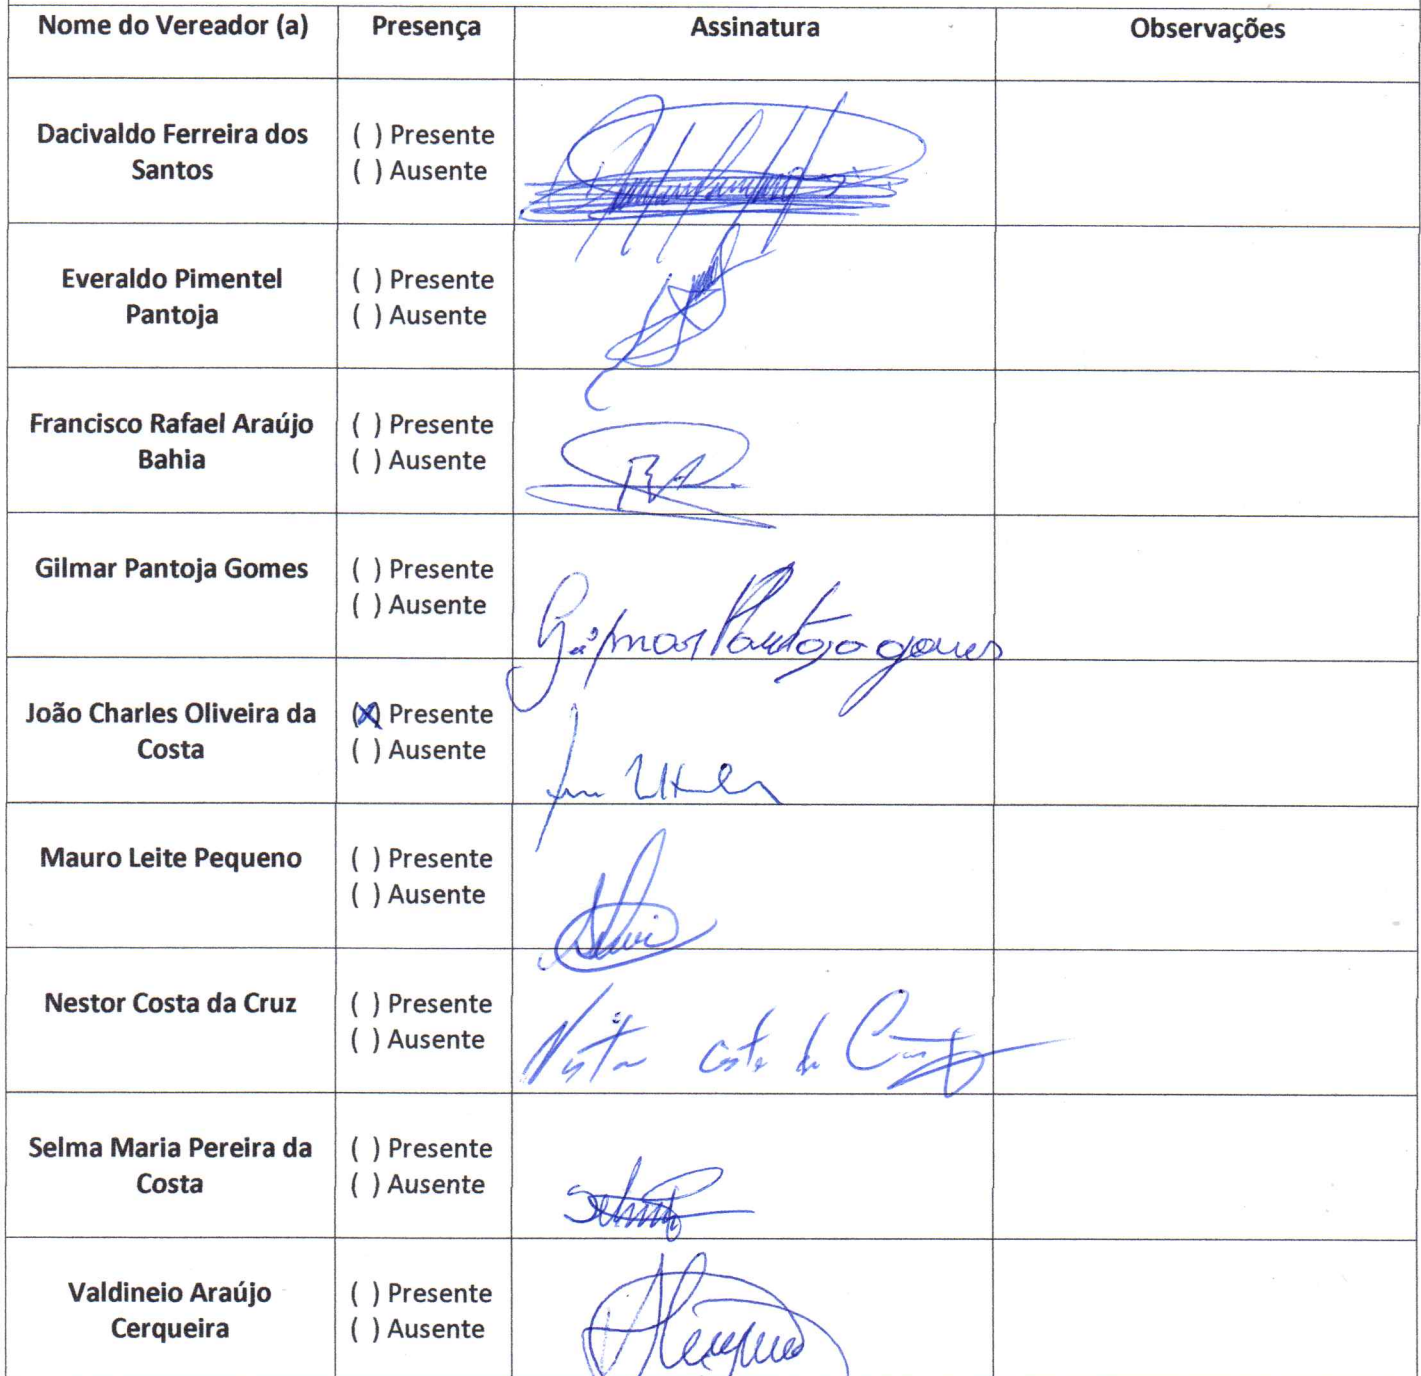 Nome do Vereador (a) Presença Assinatura Observações
Dacivaldo Ferreira dos
Santos
( ) Presente
( ) Ausente
Everaldo Pimentel
Pantoja
( ) Presente
( ) Ausente
Francisco Rafael Araújo
Bahia
( ) Presente
( ) Ausente
Gilmar Pantoja Gomes
( ) Presente
( ) Ausente
Gilmar Pantoja gomes
João Charles Oliveira da
Costa
(X) Presente
( ) Ausente
Mauro Leite Pequeno
( ) Presente
( ) Ausente
Nestor Costa da Cruz
( ) Presente
( ) Ausente
Nestor Costa da Cruz
Selma Maria Pereira da
Costa
( ) Presente
( ) Ausente
Valdineio Araújo
Cerqueira
( ) Presente
( ) Ausente